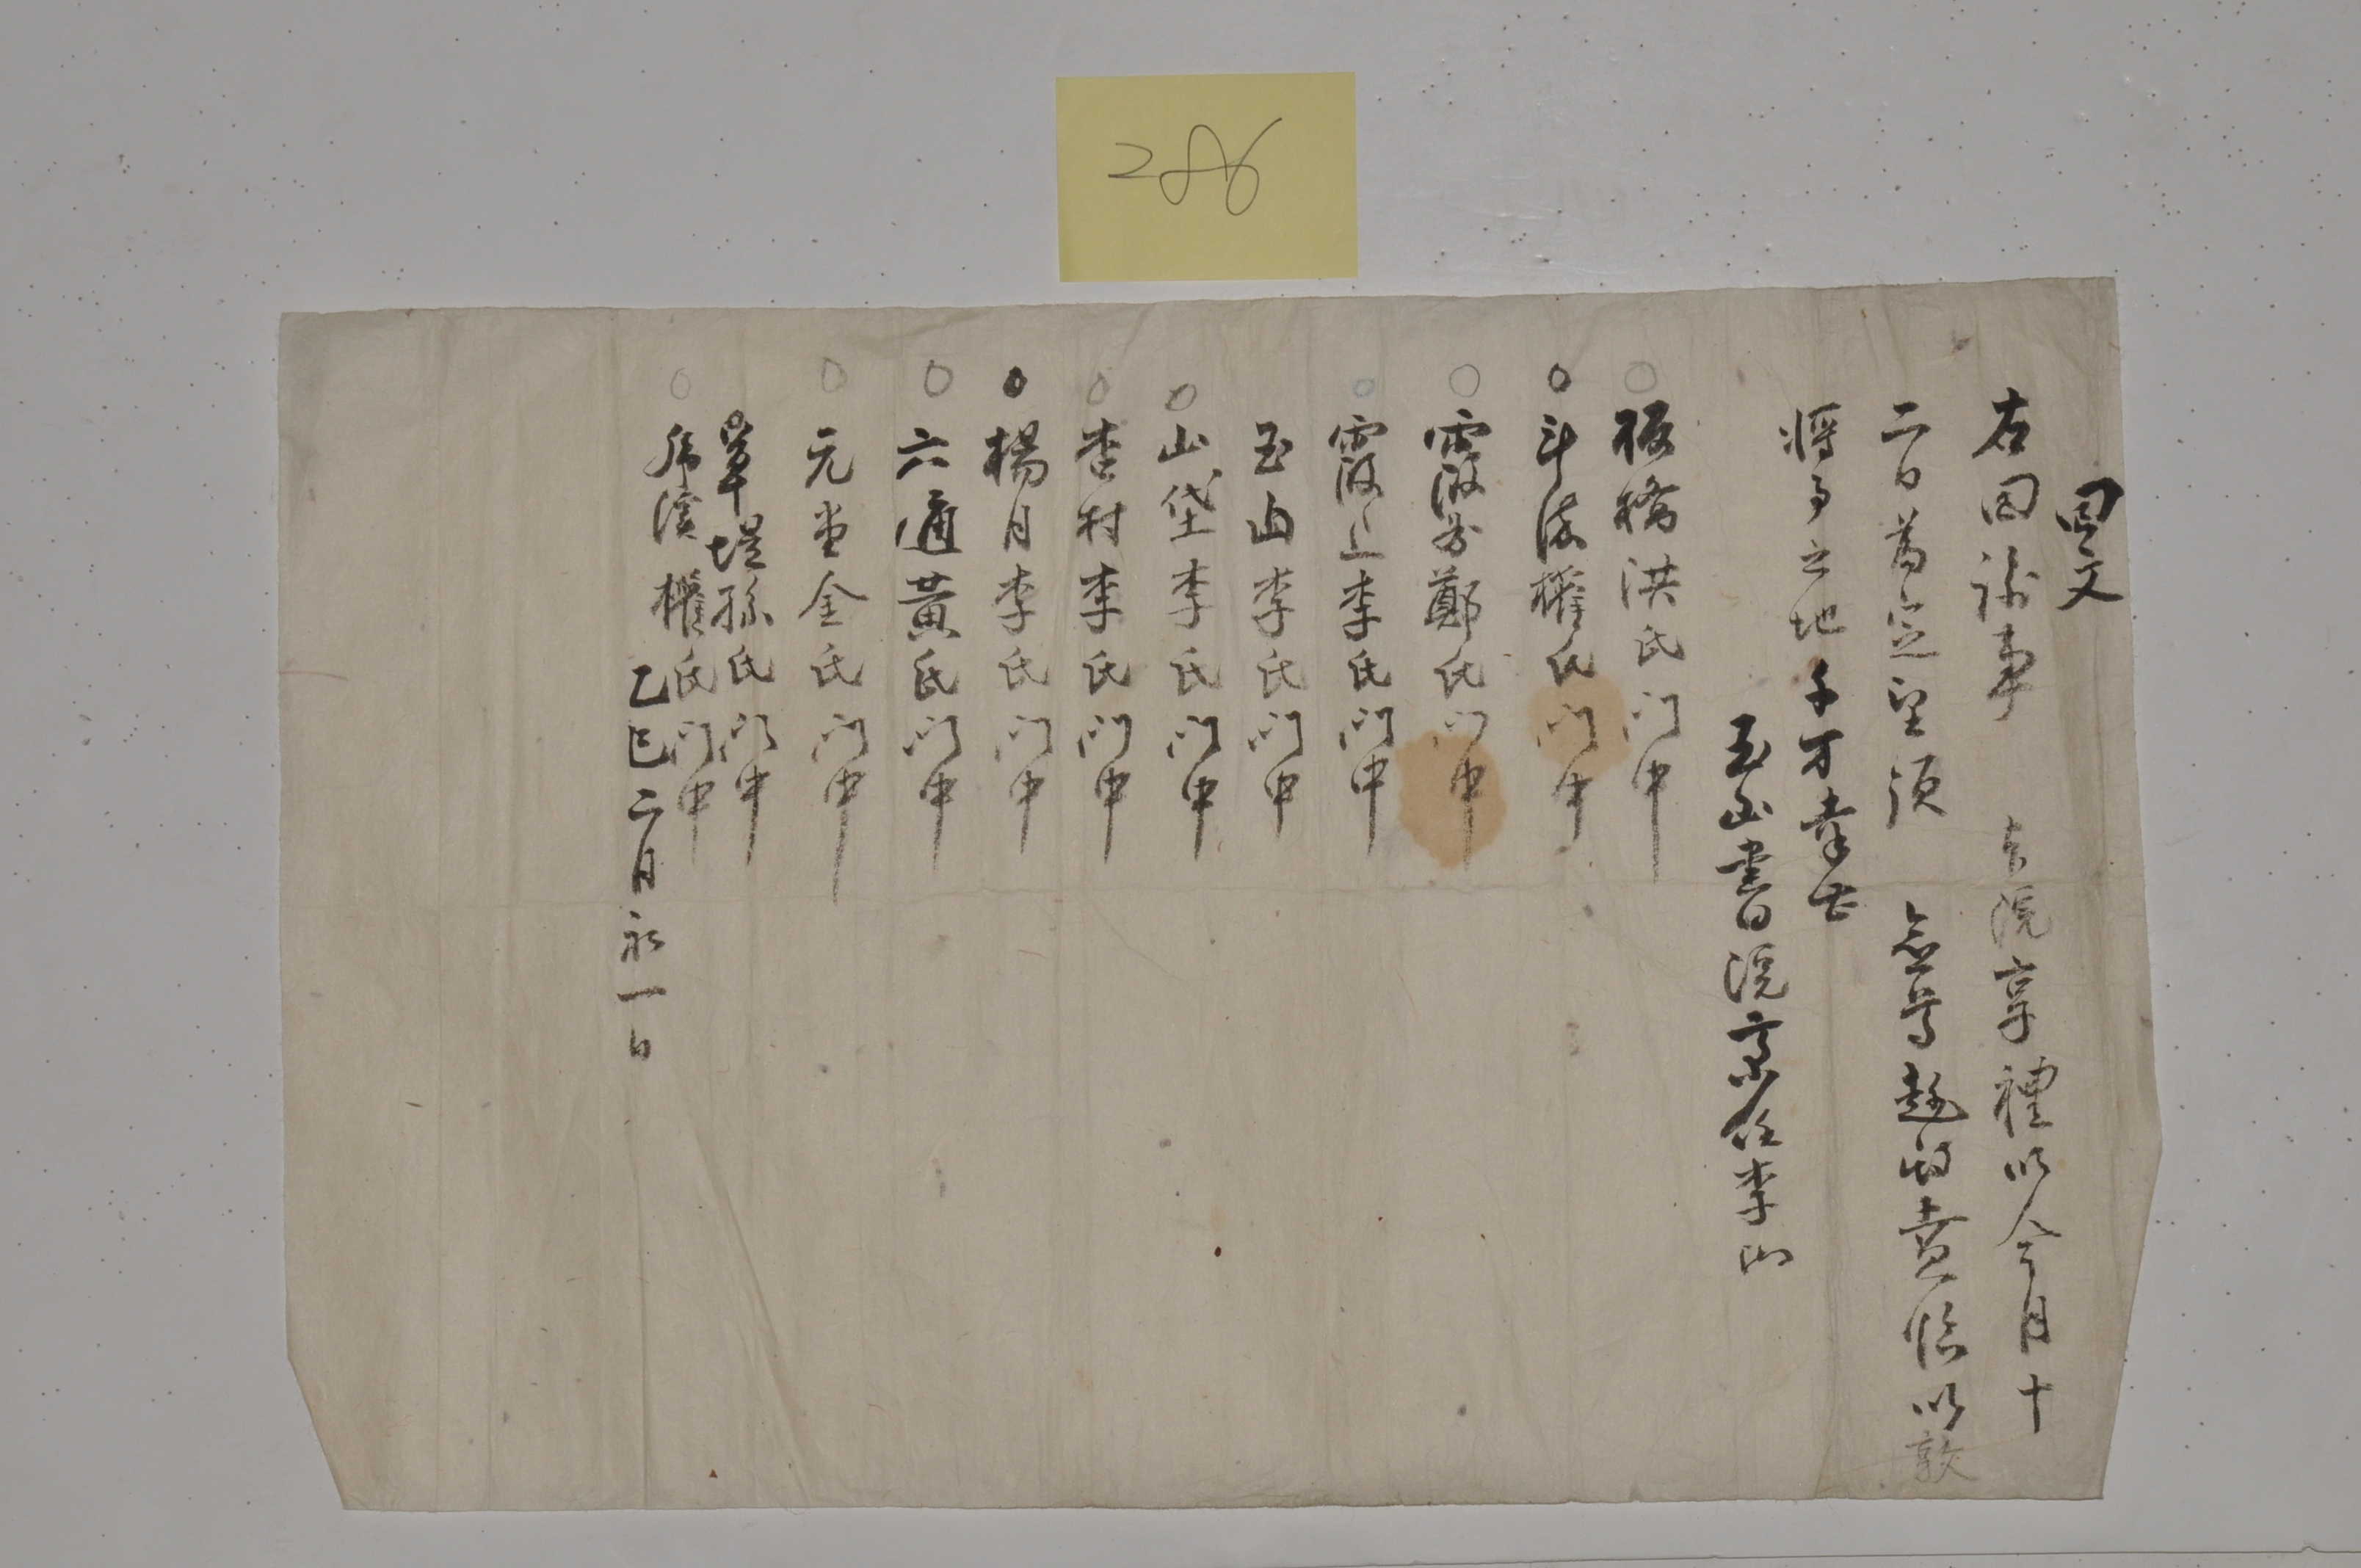 286
回文
右回諭事 本院享禮以今月十
二日爲定望須 僉尊趁時賁臨以敦
將事之地千万幸甚
玉山書院齋任李
板橋洪氏門中
斗流權氏門中
霞谷鄭氏門中
霞上李氏門中
玉山李氏門中
山垈李氏門中
杏村李氏門中
楊月李氏門中
六通黃氏門中
元堂金氏門中
草堤孫氏門中
虎溪權氏門中
乙巳二月初一日